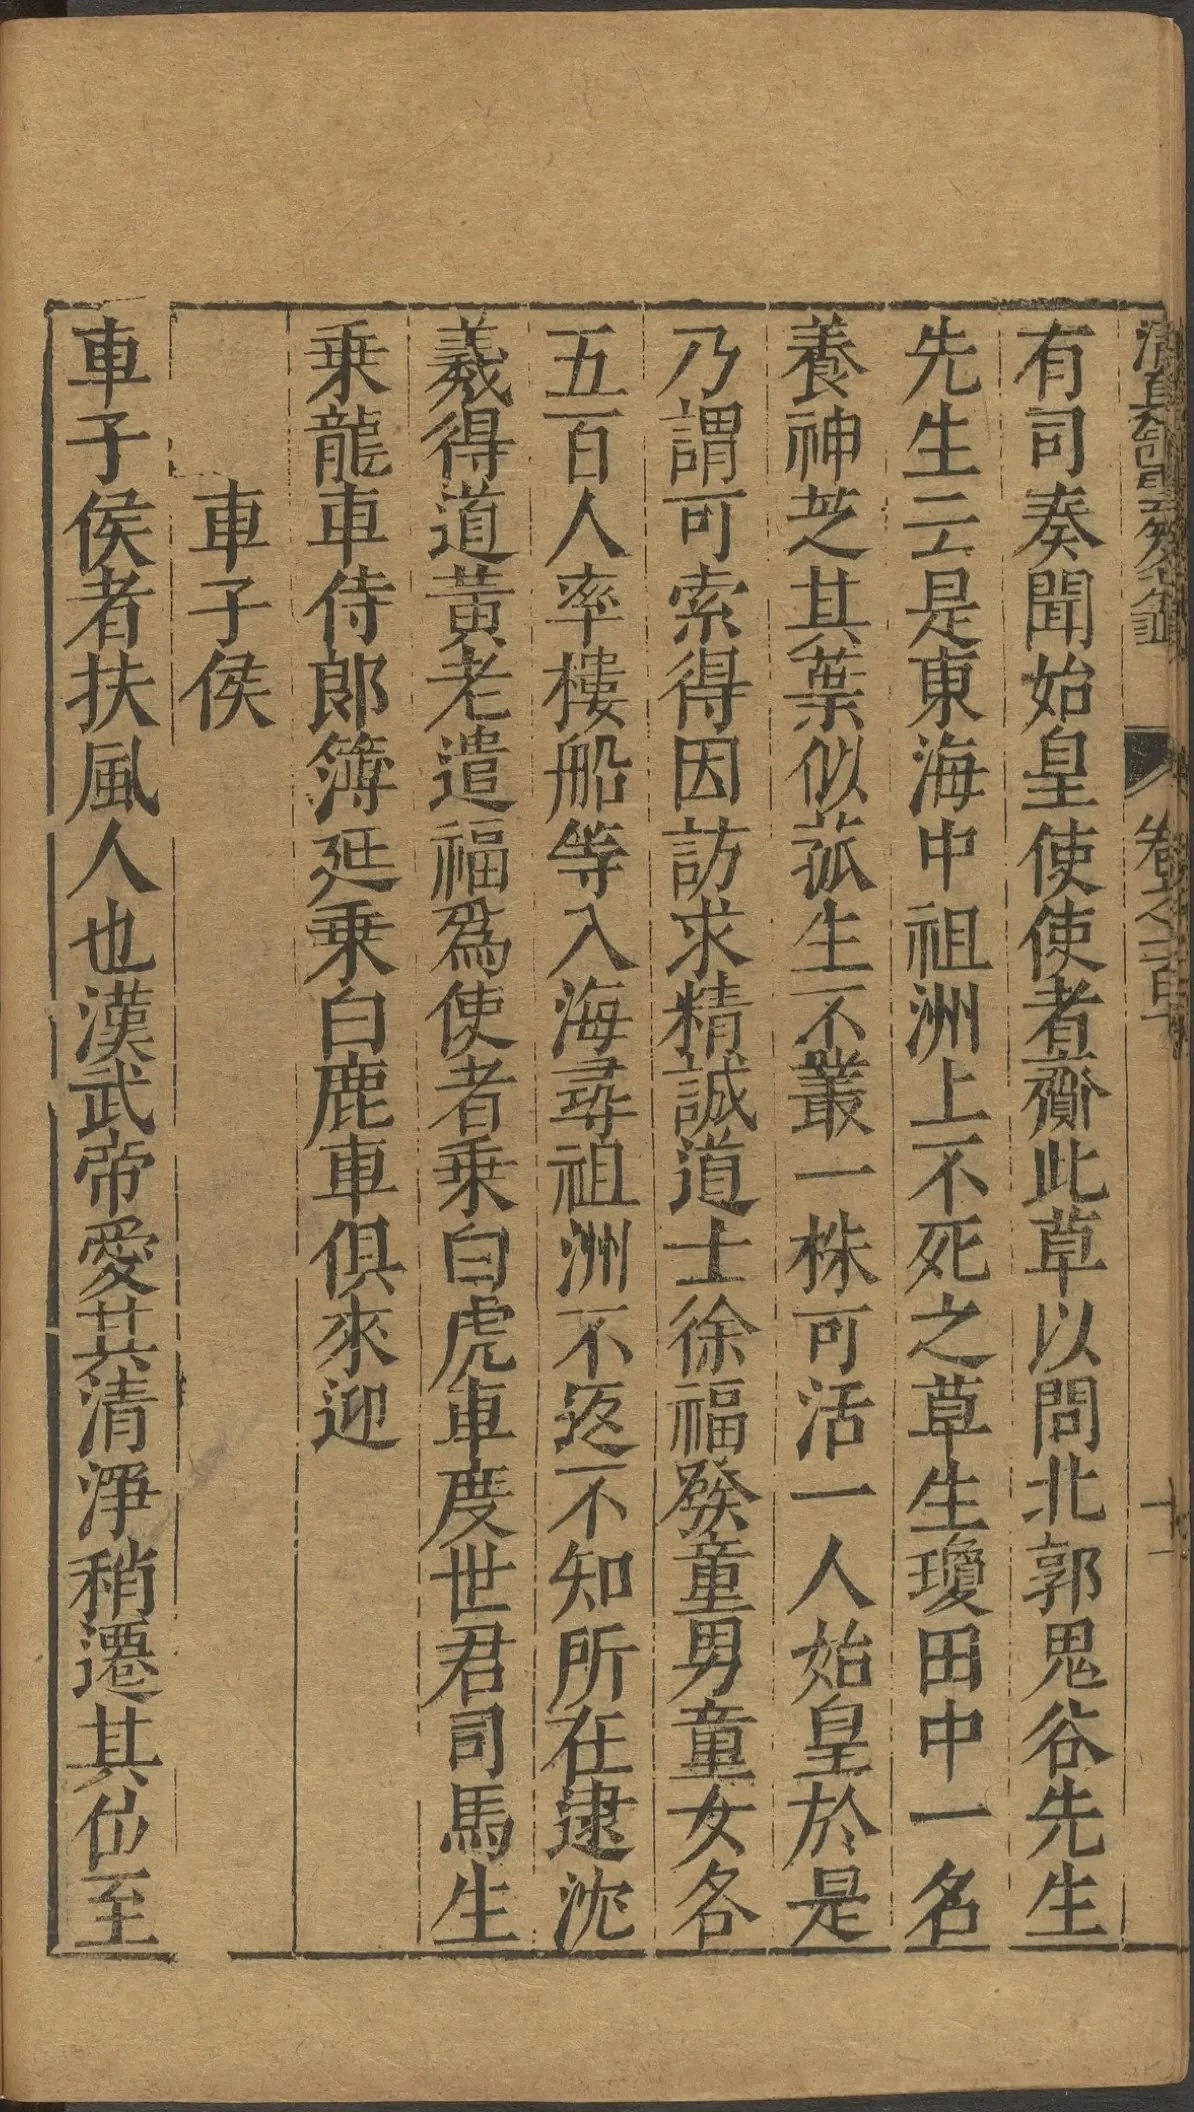 卷之二百
十一
有司奏聞始皇使使者齎此草以問北郭鬼谷先生
先生云是東海中祖洲上不死之草生瓊田中一名
養神芝其葉似菰生不叢一株可活一人始皇於是
乃謂可索得因訪求精誠道士徐福發童男童女各
五百人率樓船等入海尋祖洲不返不知所在逮沈
羲得道黃老遣福爲使者乗白虎車度世君司馬生
乗龍車侍郎簿延乗白鹿車俱來迎
車子侯
車子侯者扶風人也漢武帝愛其清淨稍遷其位至